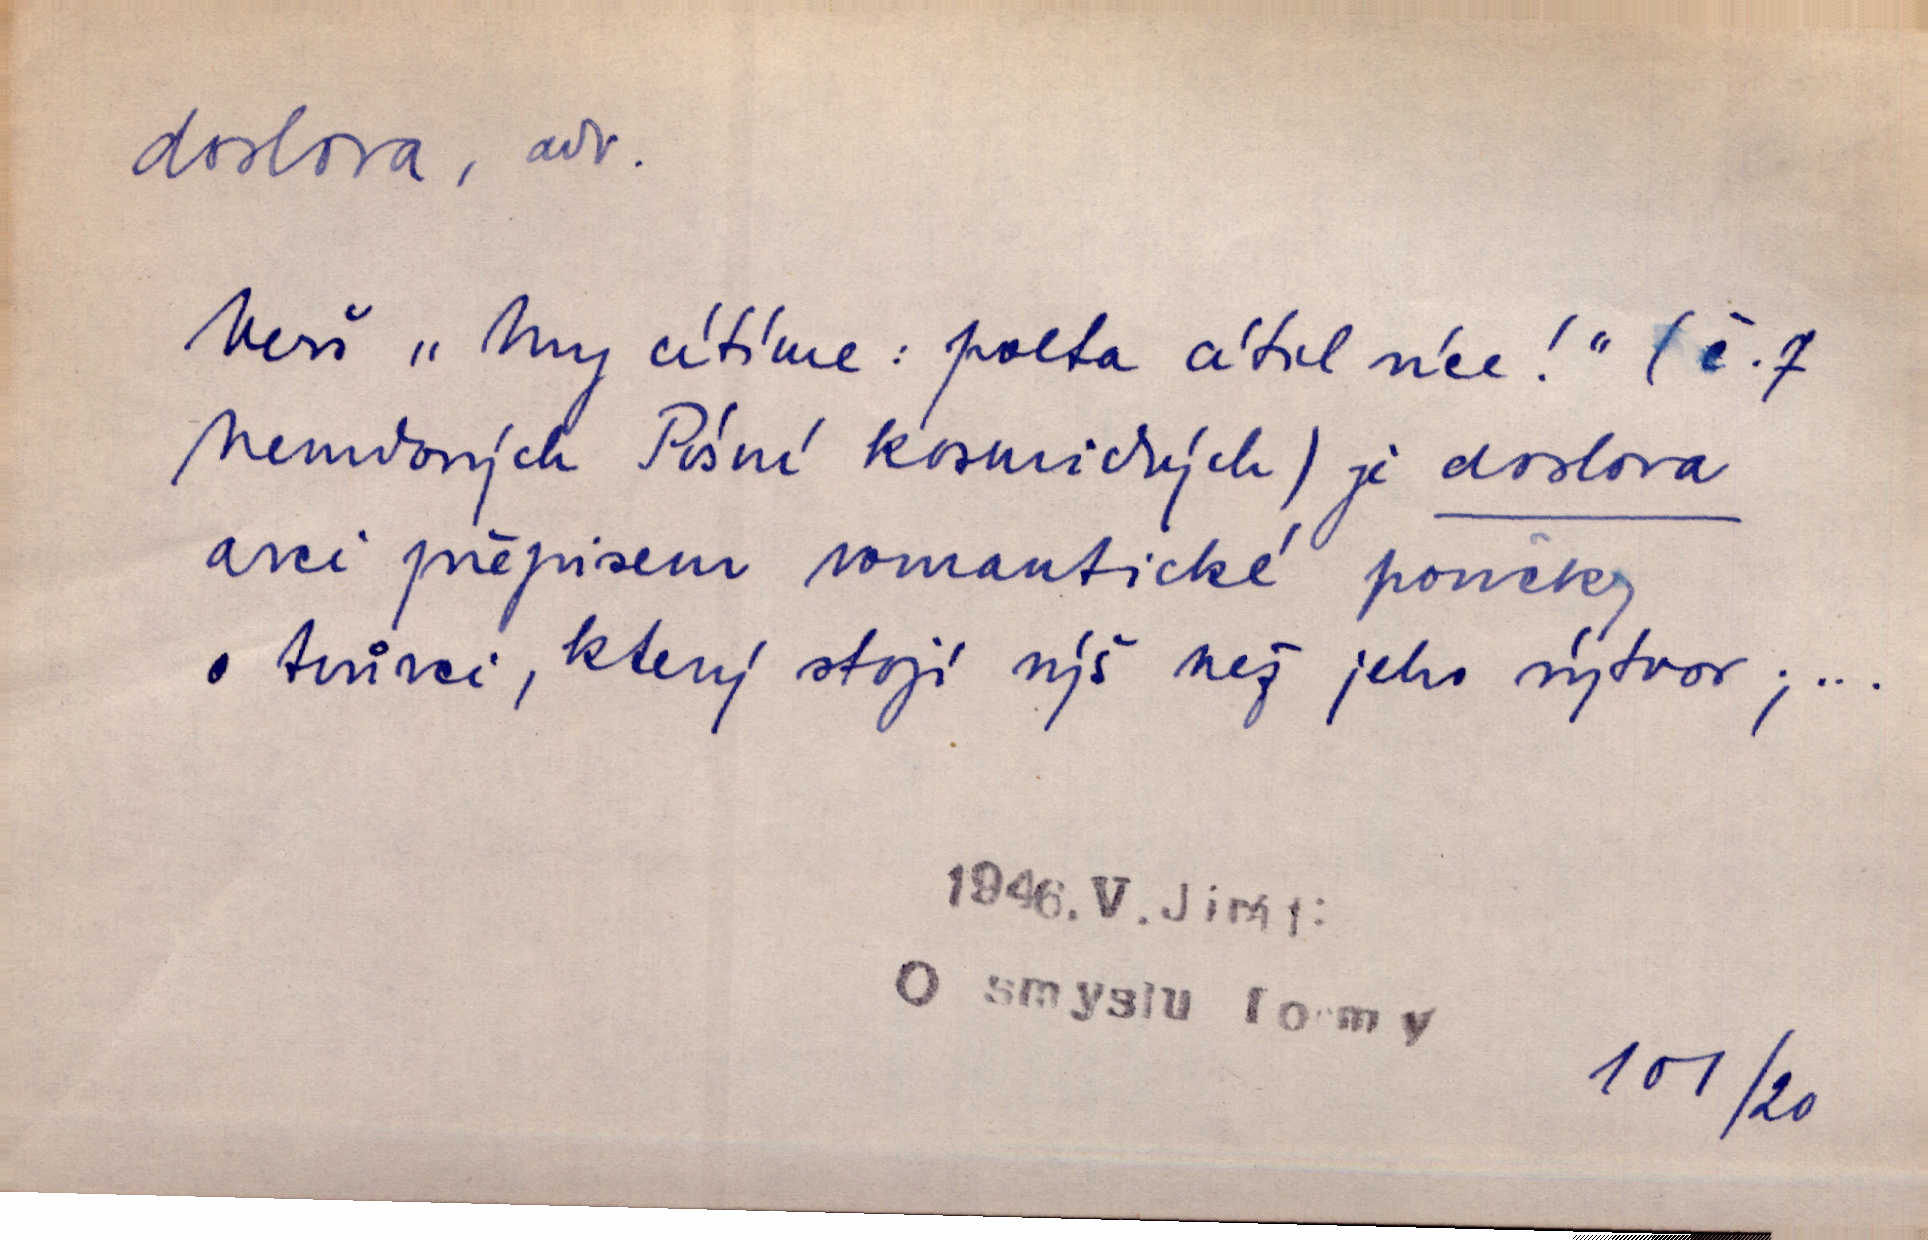 doslova, adv.
Verš „My cítíme: poeta cítil více!“ (č. 7
Nerudových Písní kosmických) je doslova
arci přepisem romantické poučky
o tvůrci, který stojí výš než jeho výtvor; ...
1946. V. Jirát:
O smyslu formy
101/20